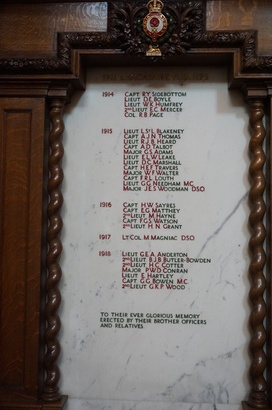 1914 CAPT R.Y. SIDEBOTTOM
LIEUT D.E. BOYLE
LIEUT W.K. HUMFREY
2ND LIEUT E.C. MERCER
COL. R.B. PAGE
1915 LIEUT L.S.L. BLAKENEY
CAPT A.J.N. THOMAS
LIEUT R.J.B. HEARD
CAPT A.D. TALBOT
MAJOR G.S. ADAMS
LIEUT E.L.W. LEAKE
LIEUT D.C. MARSHALL
CAPT H.E.F. TRAVERS
MAJOR W.F. WALTER
CAPT F.R.L. LOUTH
LIEUT G.G. NEEDHAM M.C.
MAJOR J.E.S. WOODMAN DSO
1916 CAPT H.W. SAYRES
CAPT E.G. MATTHEY
LIEUT M. HAYNE
CAPT F.G.S. WATSON
2ND LIEUT H.N. GRANT
1917 LT COL M. MAGNIAC DSO
1918 LIEUT G.E.A. ANDERTON
2ND LIEUT B.J.B. BUTLER-BOWDEN
2ND LIEUT H.C. COTTER
MAJOR P.W.D. CONRAN
LIEUT E. HARTLEY
CAPT G.G. BOWEN M.C.
2ND LIEUT G.K.P. WOOD
TO THEIR EVER GLORIOUS MEMORY
ERECTED BY THEIR BROTHER OFFICERS
AND RELATIVES